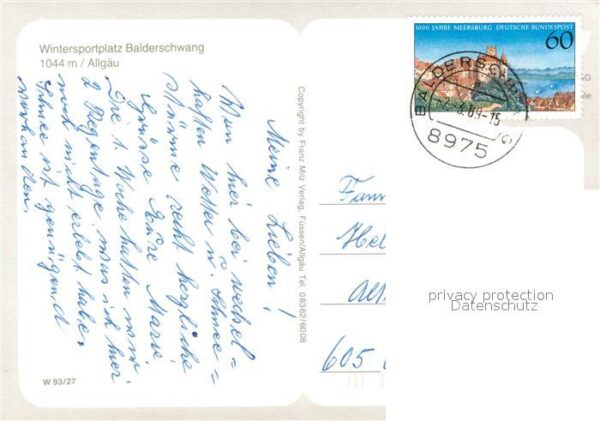 Wintersportplatz Balderschwang
1044 m / Allgäu
1000 JAHRE MEERSBURG DEUTSCHE BUNDESPOST
60
BALDERSCHWANG
-15
8975
Copyright by Franz Milz Verlag, Füssen/Allgäu Tel. 08362/6008
Meine Lieben!
Von hier bei wechsel=
haften Wetter u. Schnee=
stürme recht herzliche
Grüsse Eure Marie.
Die 1. Woche hatten wir
2 Regentage, was ich hier
noch nicht erlebt habe,
Schnee ist genügend
vorhanden.
605
privacy protection
Datenschutz
W 93/27